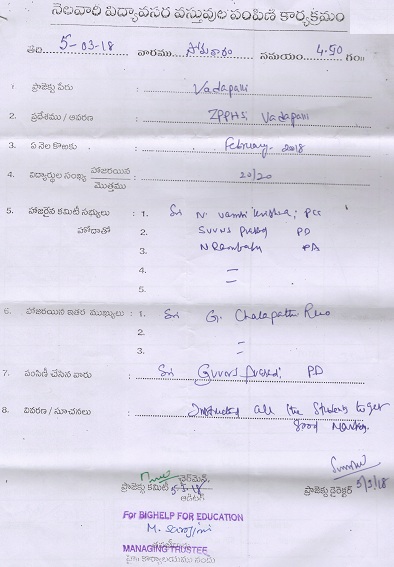 నెలవారి విద్యావసర వస్తువుల పంపిణి కార్యక్రమం
తేది 5-03-18 వారము సోమవారం సమయం 4.50 గం॥
1. ప్రాజెక్టు పేరు : Vadapalli
2. ప్రదేశము / ఆవరణ : ZPPHS Vadapalli
3. ఏ నెల కొఱకు : February - 2018
4. విద్యార్థుల సంఖ్య హాజరయిన / మొత్తము : 20/20
5. హాజరైన కమిటీ సభ్యులు : 1. Sri N. Vamsi Krishna, PCC
హోదాతో 2. PD
3. N Rambabu PA
4. =
5.
6. హాజరయిన ఇతర ముఖ్యులు : 1. Sri G. Chalapathi Rao
2.
3. =
7. పంపిణీ చేసిన వారు : Sri Prasad PD
8. వివరణ / సూచనలు : Instructed all the Students to get
good Marks.
ఛైర్మెన్,
ప్రాజెక్టు కమిటీ 5-3-18
ఆడిటర్
ప్రాజెక్టు డైరెక్టర్ 5/3/18
For BIGHELP FOR EDUCATION
M. Sarojini
MANAGING TRUSTEE